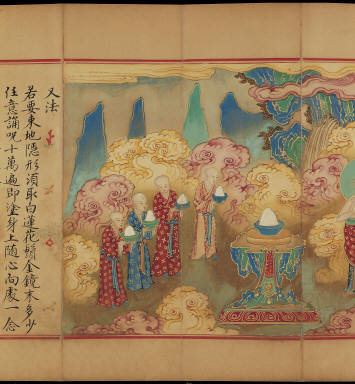 又法
若要東地隱形須取白蓮花蘂金鏡末多少
任意誦呪十萬遍即塗身上隨心向處一念